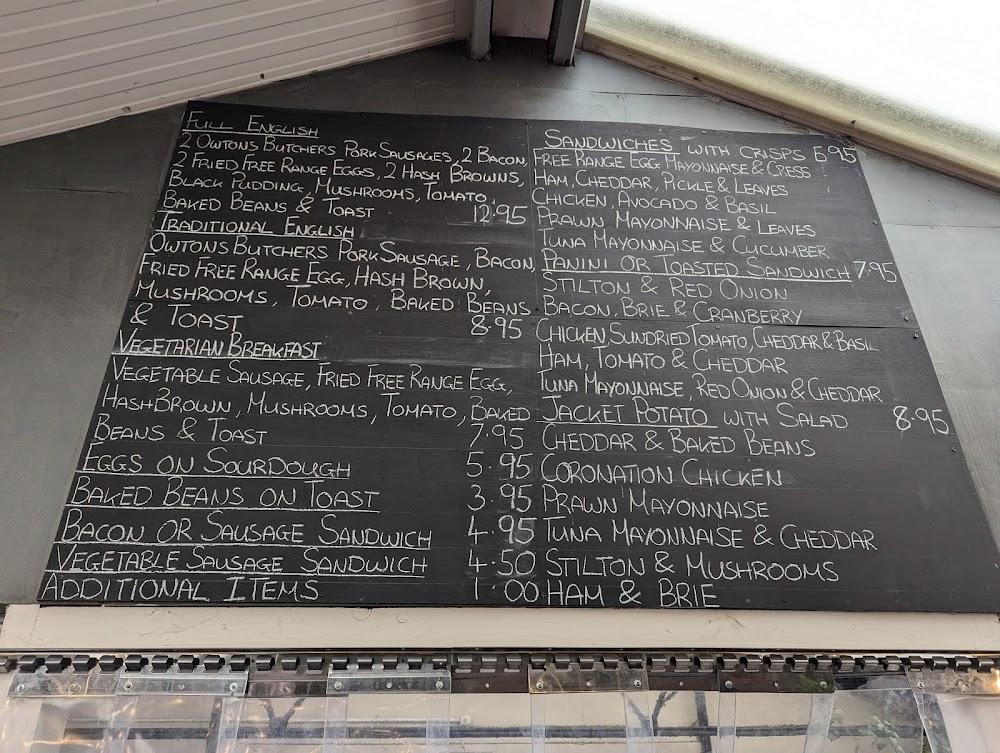 FULL ENGLISH
2 OWTONS BUTCHERS PORK SAUSAGES, 2 BACON,
2 FRIED FREE RANGE EGGS, 2 HASH BROWNS,
BLACK PUDDING, MUSHROOMS, TOMATO,
BAKED BEANS & TOAST 12.95
TRADITIONAL ENGLISH
OWTONS BUTCHERS PORK SAUSAGE, BACON,
FRIED FREE RANGE EGG, HASH BROWN,
MUSHROOMS, TOMATO, BAKED BEANS
& TOAST 8.95
VEGETARIAN BREAKFAST
VEGETABLE SAUSAGE, FRIED FREE RANGE EGG,
HASH BROWN, MUSHROOMS, TOMATO, BAKED
BEANS & TOAST 7.95
EGGS ON SOURDOUGH 5.95
BAKED BEANS ON TOAST 3.95
BACON OR SAUSAGE SANDWICH 4.95
VEGETABLE SAUSAGE SANDWICH 4.50
ADDITIONAL ITEMS 1.00
SANDWICHES WITH CRISPS 6.95
FREE RANGE EGG MAYONNAISE & CRESS
HAM, CHEDDAR, PICKLE & LEAVES
CHICKEN, AVOCADO & BASIL
PRAWN MAYONNAISE & LEAVES
TUNA MAYONNAISE & CUCUMBER
PANINI OR TOASTED SANDWICH 7.95
STILTON & RED ONION
BACON, BRIE & CRANBERRY
CHICKEN, SUNDRIED TOMATO, CHEDDAR & BASIL
HAM, TOMATO & CHEDDAR
TUNA MAYONNAISE, RED ONION & CHEDDAR
JACKET POTATO WITH SALAD 8.95
CHEDDAR & BAKED BEANS
CORONATION CHICKEN
PRAWN MAYONNAISE
TUNA MAYONNAISE & CHEDDAR
STILTON & MUSHROOMS
HAM & BRIE